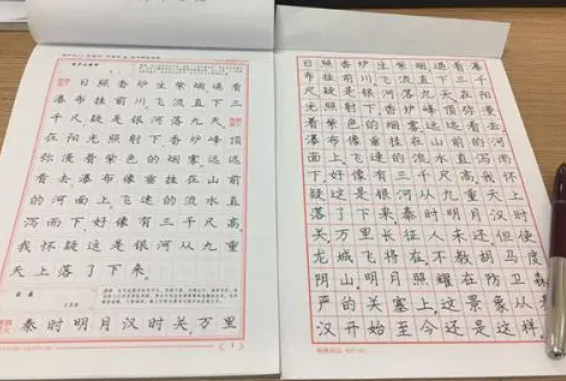 日照香炉生紫烟遥看
瀑布挂前川,飞流直下三
千尺疑是银河落九天
在阳光照射下,香炉峰顶
弥漫着紫色的烟雾,远远
看去,瀑布像垂挂在山前
的河面上,飞速的流水直
泻而下,好像有三千尺高,
我怀疑这是银河从九重
天上落了下来。
秦时明月汉时关,万里
日照香炉生紫烟遥看瀑
布挂前川飞流直下三千
尺疑是银河落九天在阳
光照射下香炉峰顶弥漫
着紫色的烟雾远远看去,
瀑布像垂挂在山前的河
面上,飞速的流水直泻而
下,好像有三千尺高,我怀
疑这是银河从九重天上
落了下来秦时明月汉时
关,万里长征人未还,但使
龙城飞将在,不教胡马度
阴山,明月照耀在防卫森
严的关塞上,这景象从
汉开始至今还是这样,